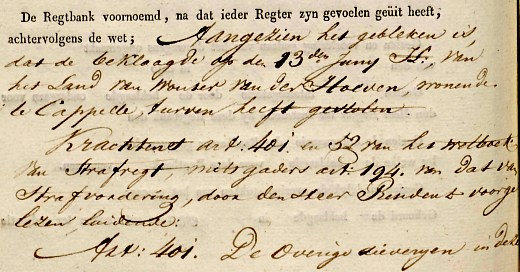 De Regtbank voornoemd, na dat ieder Regter zyn gevoelen geüit heeft,
achtervolgens de wet; Aangezien het gebleken is,
dat de beklaagde op den 13den Juny Hr, van
het Land van wouter van der Hoeven, wonende
te Cappelle turven heeft gestolen.
Krachtens art: 401. en 52 van het wetboek
van Strafregt, mitsgaders art: 194. van dat van
Strafvordering, door den Heer Président voorge
lezen, luidende:
Art: 401. De Overige dieveryen in deze